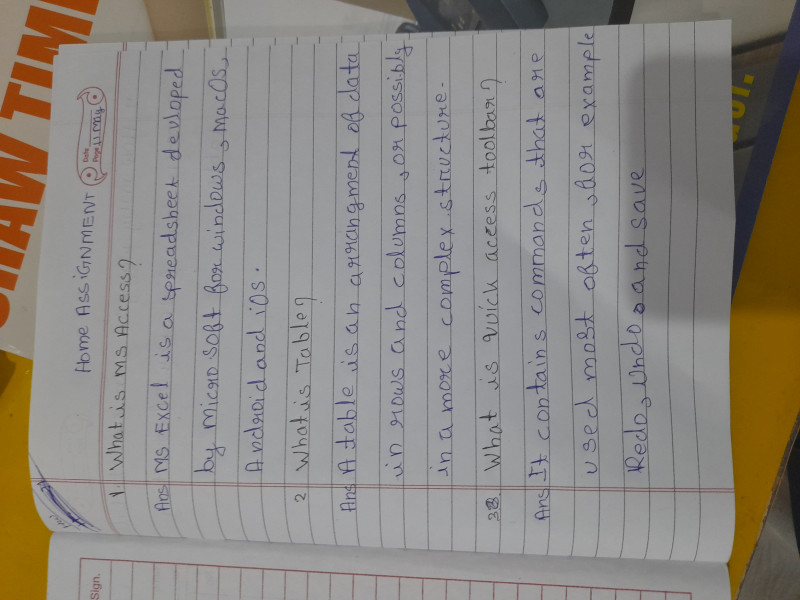 HOME ASSIGNMENT
Date
Page 11 May
1. What is MS Access?
Ans MS Excel is a spreadsheet devloped
by Micro soft for windows, MacOS,
Android and ios.
2 What is Table?
Ans A table is an arrangment of data
in rows and columns, or possibly
in a more complex structure.
3 What is Quick access toolbar?
Ans It contains commands that are
used most often, for example
Redo, Undo and save
Sign.
RAW TIME